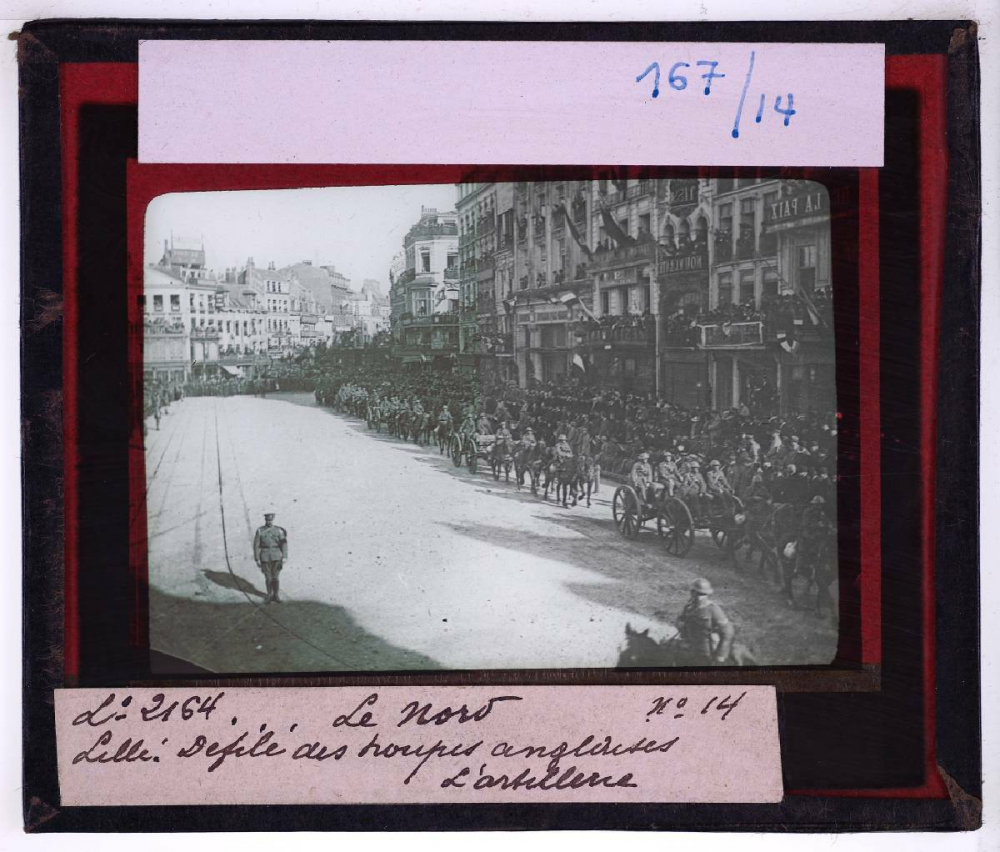 167/14
LA PAIX
Lº 2164. Le Nord Nº 14
Lille. Défilé des troupes anglaises
L'artillerie